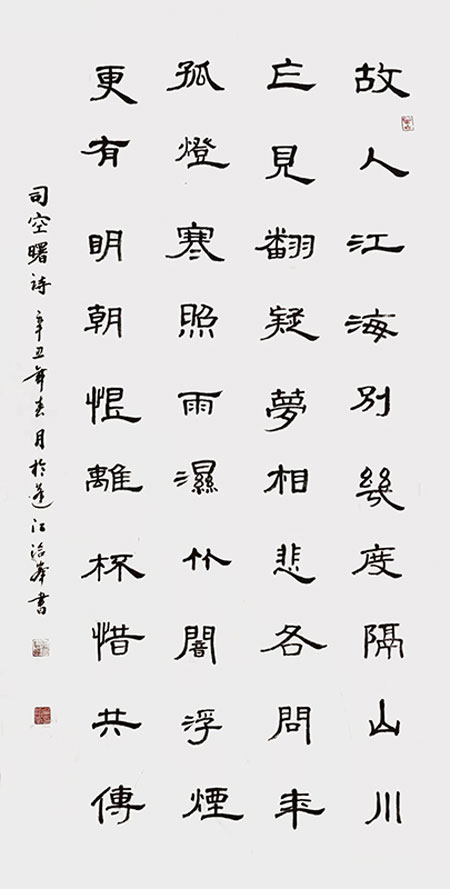 故人江海別幾度隔山川
亡見翻疑夢相悲各問年
孤燈寒照雨濕竹闇浮煙
更有明朝恨離杯惜共傳
司空曙詩 辛丑年春月於蓮江治峯書